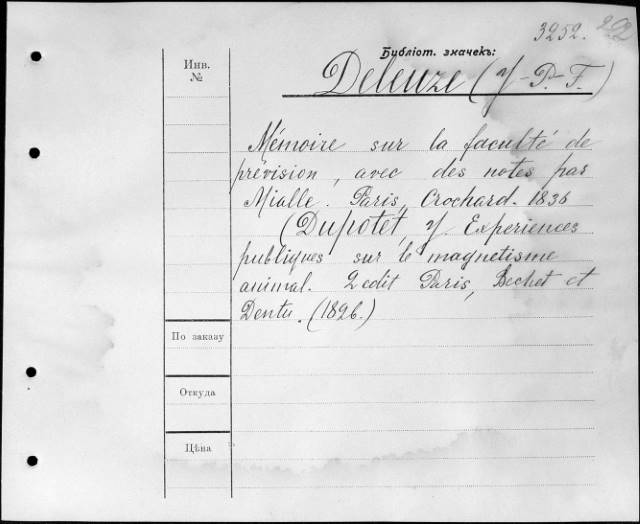 3252. 202
Библіот. значекъ:
Инв. №
Deleuze (J-P-F.)
Mémoire sur la faculté de
prevision, avec des notes par
Mialle. Paris, Crochard. 1836
(Dupotet, J. Experiences
publiques sur le magnetisme
animal. 2 edit Paris, Bechet et
Dentu. (1826.)
По заказу
Откуда
Цѣна